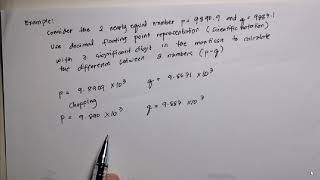 Example:
Consider the 2 nearly equal number p = 9890.9 and q = 9887.1
Use decimal floating point representation (scientific notation)
with 3 significant digit in the mantissa to calculate
the difference between 2 numbers (p-q)
p = 9.8909 × 10³ q = 9.8871 × 10³
Chopping
p = 9.890 × 10³ q = 9.887 × 10³